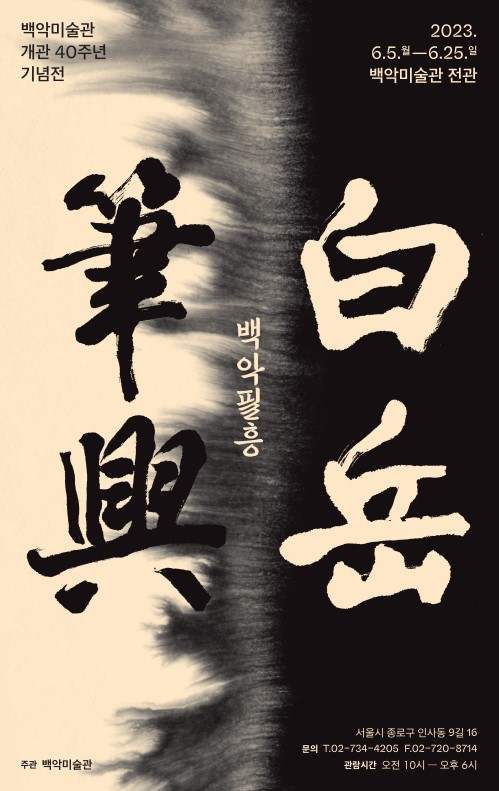 백악미술관
개관 40주년
기념전
2023.
6.5.월—6.25.일
백악미술관 전관
白岳
筆興
백악필흥
서울시 종로구 인사동 9길 16
문의 T.02-734-4205 F.02-720-8714
관람시간 오전 10시 — 오후 6시
주관 백악미술관